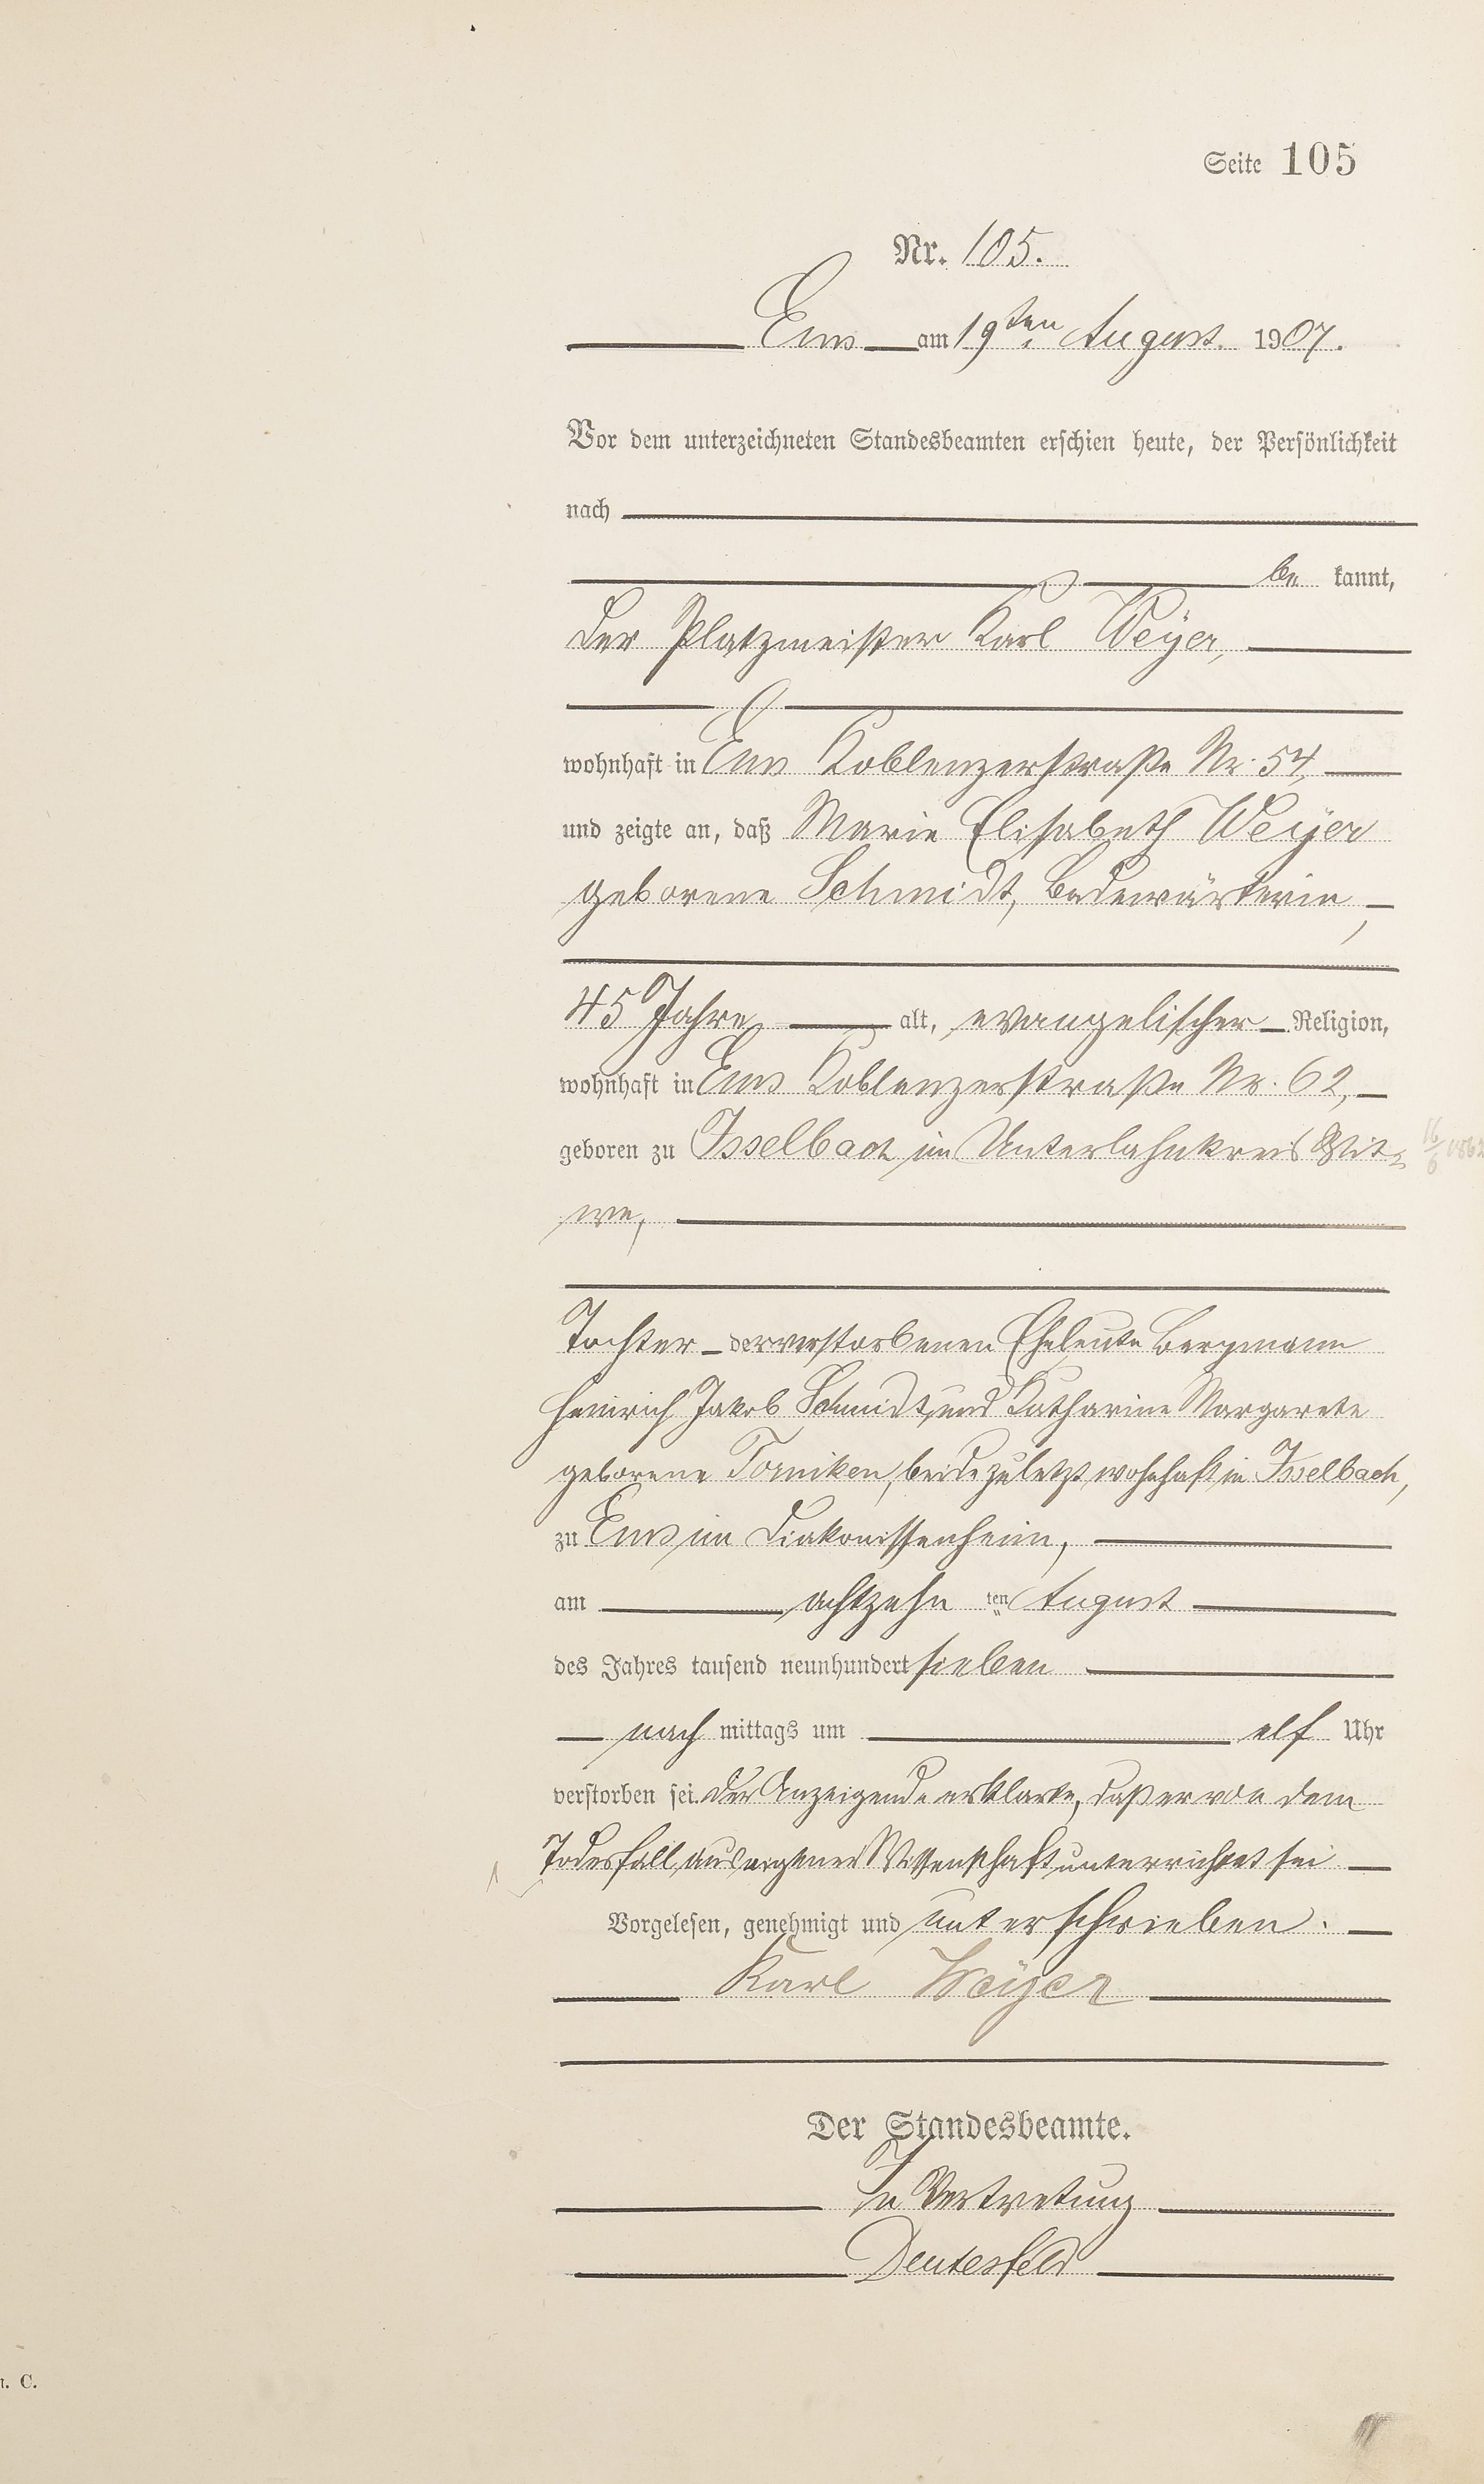 Seite 105
Nr. 105.
Ems am 19ten August 1907.
Vor dem unterzeichneten Standesbeamten erschien heute, der Persönlichkeit
nach
be kannt,
der Platzmeister Karl Weÿer,
wohnhaft in Ems Koblenzerstraße Nr. 54,
und zeigte an, daß Marie Elisabeth Weÿer
geborene Schmidt, Badewärterin,
45 Jahre alt, evangelischer Religion,
wohnhaft in Ems Koblenzerstraße Nr. 62,
geboren zu Isselbach im Unterlahnkreis Wit- 16/6 1862
we,
Tochter der verstorbenen Eheleute Bergmann
Heinrich Jakob Schmidt, und Katharine Margarete
geborene Torniken, beide zuletzt wohnhaft in Isselbach,
zu Ems im Diakonissenheim,
am achtzehn ten August
des Jahres tausend neunhundert sieben
nach mittags um elf Uhr
verstorben sei. Der Anzeigende erklärte, daß er von dem
Todesfall aus eigener Wissenschaft unterrichtet sei
Vorgelesen, genehmigt und unterschrieben.
Karl Weÿer
Der Standesbeamte.
In Vertretung
Deutesfeld
. C.